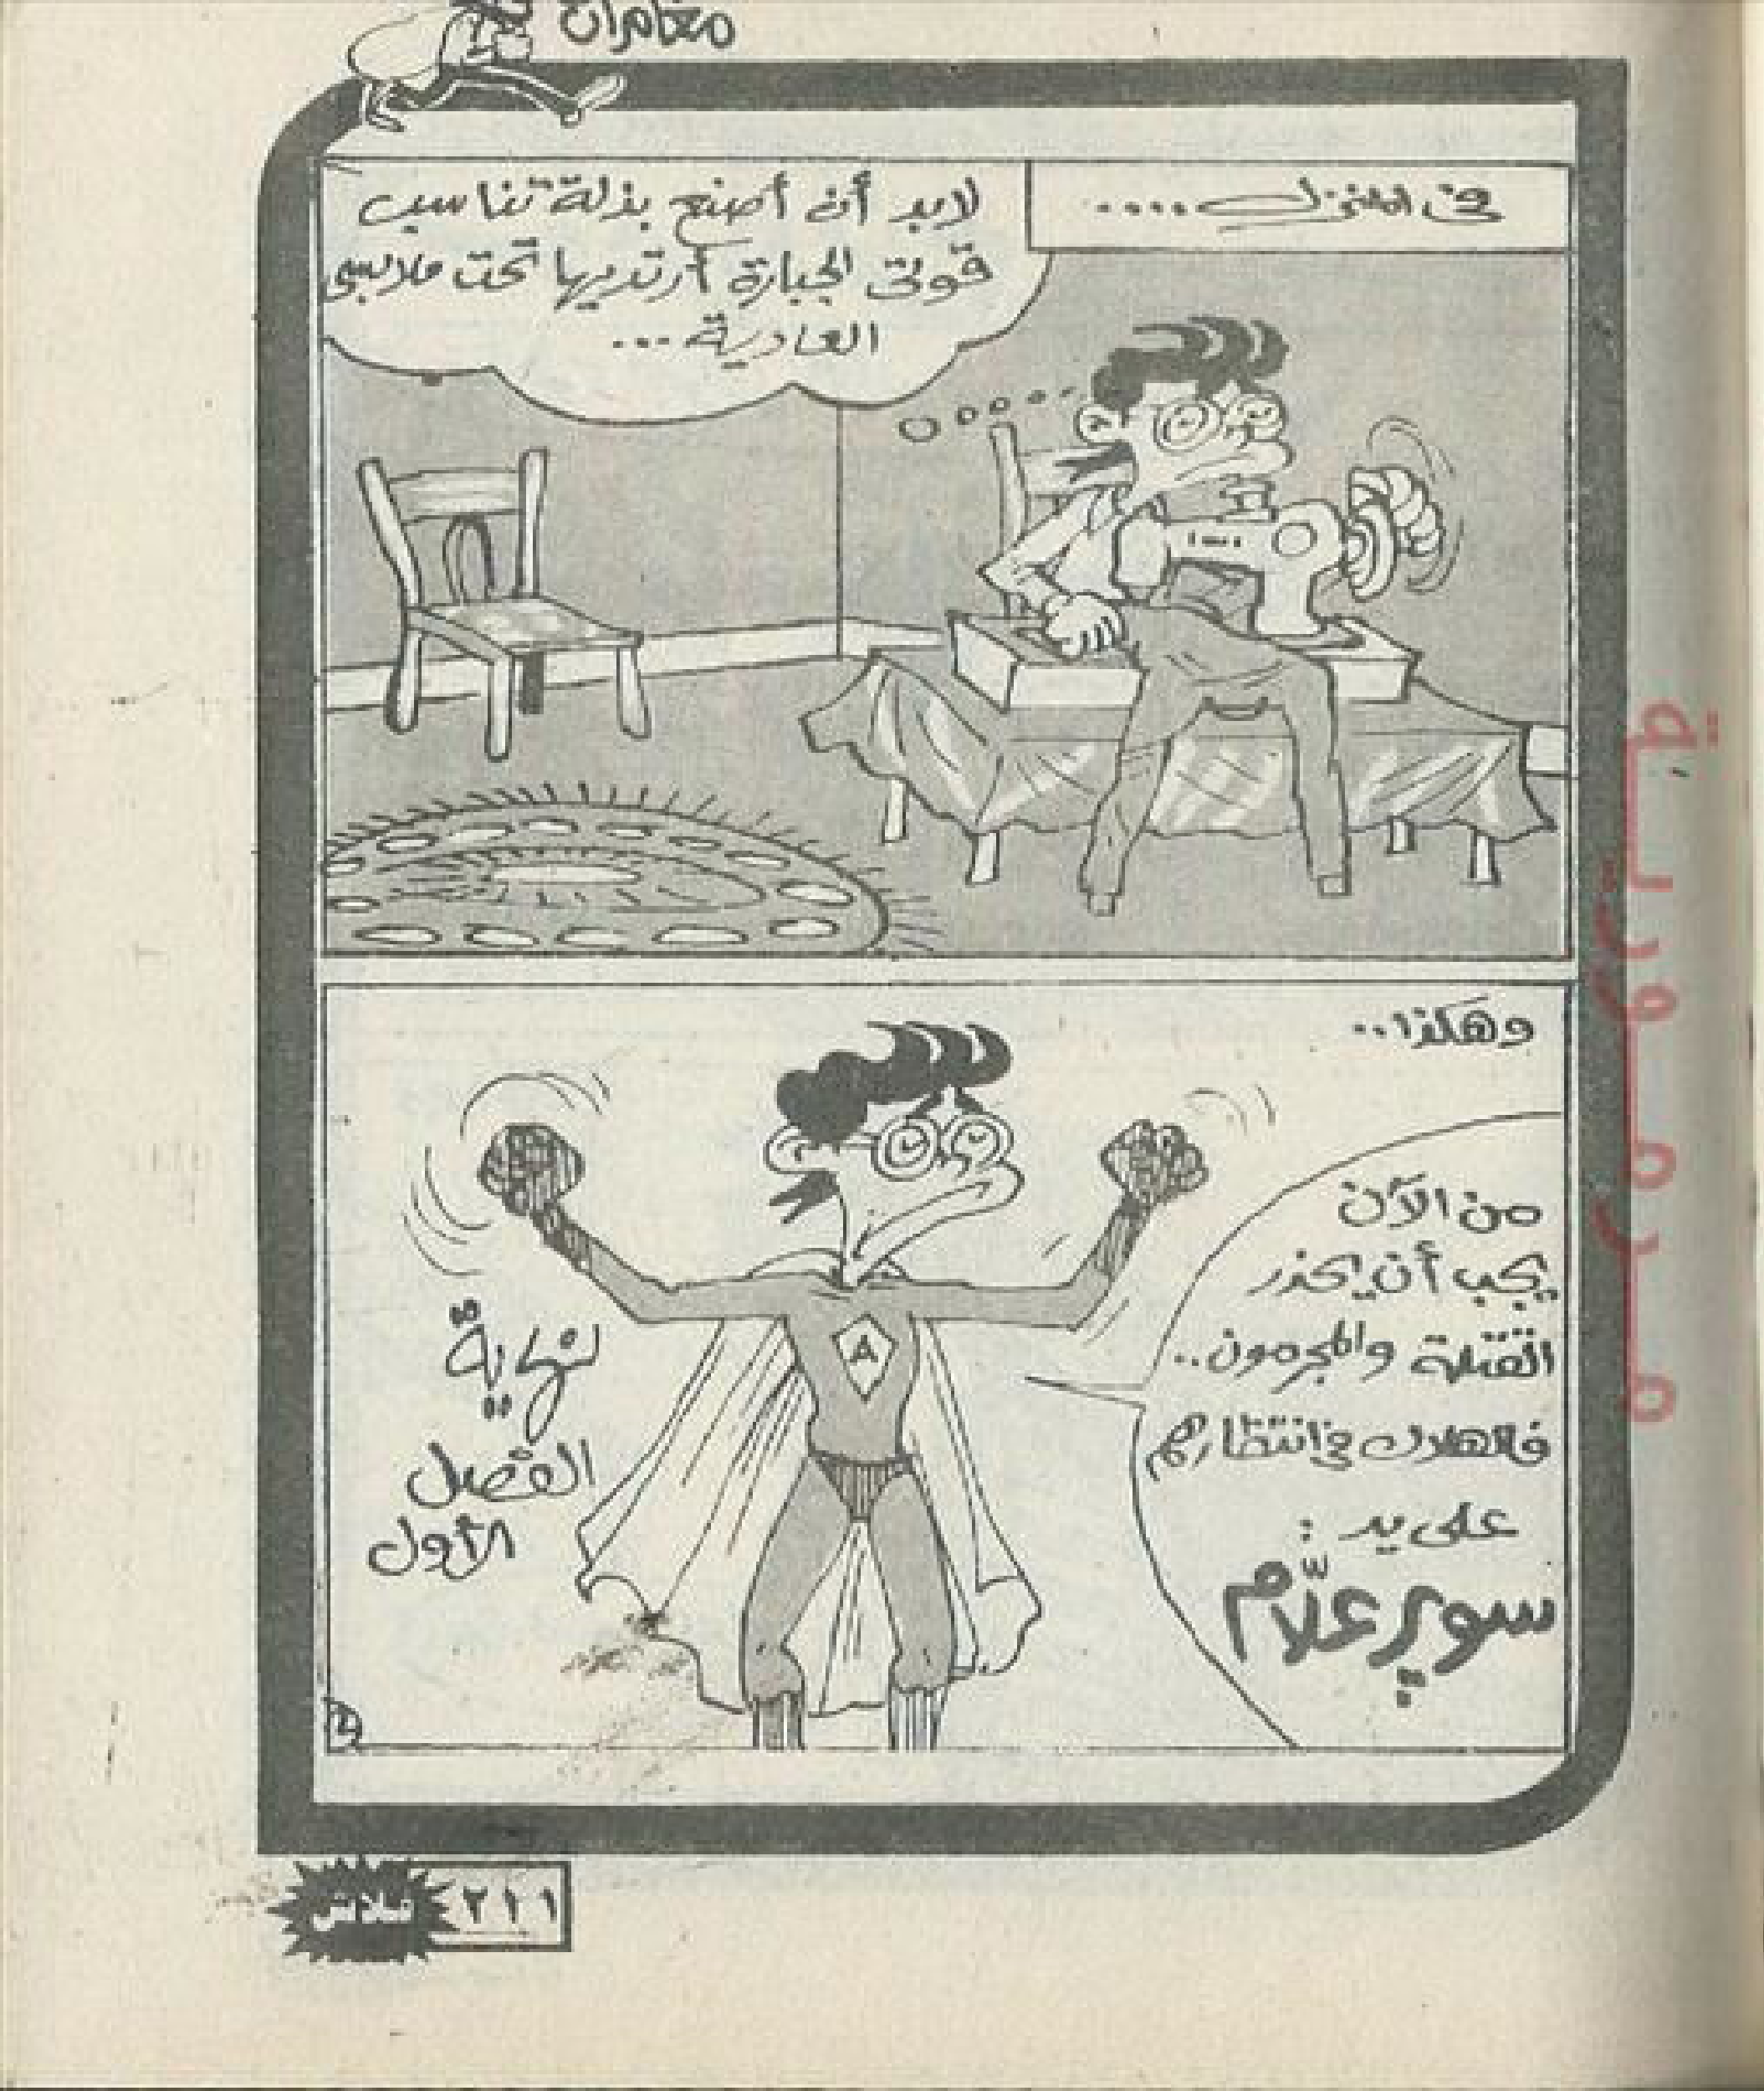 مغامرات
فى المنزل ....
لابد أن أصنع بذلة تناسب
قوتى الجبارة أرتديها تحت ملابسى
العادية ...
وهكذا..
من الآن
يجب أن يحذر
القتلة والمجرمون..
فالهلاك فى انتظارهم
على يد :
سوپر علّام
A
نهاية
الفصل
الأول
٢١١
فلاش